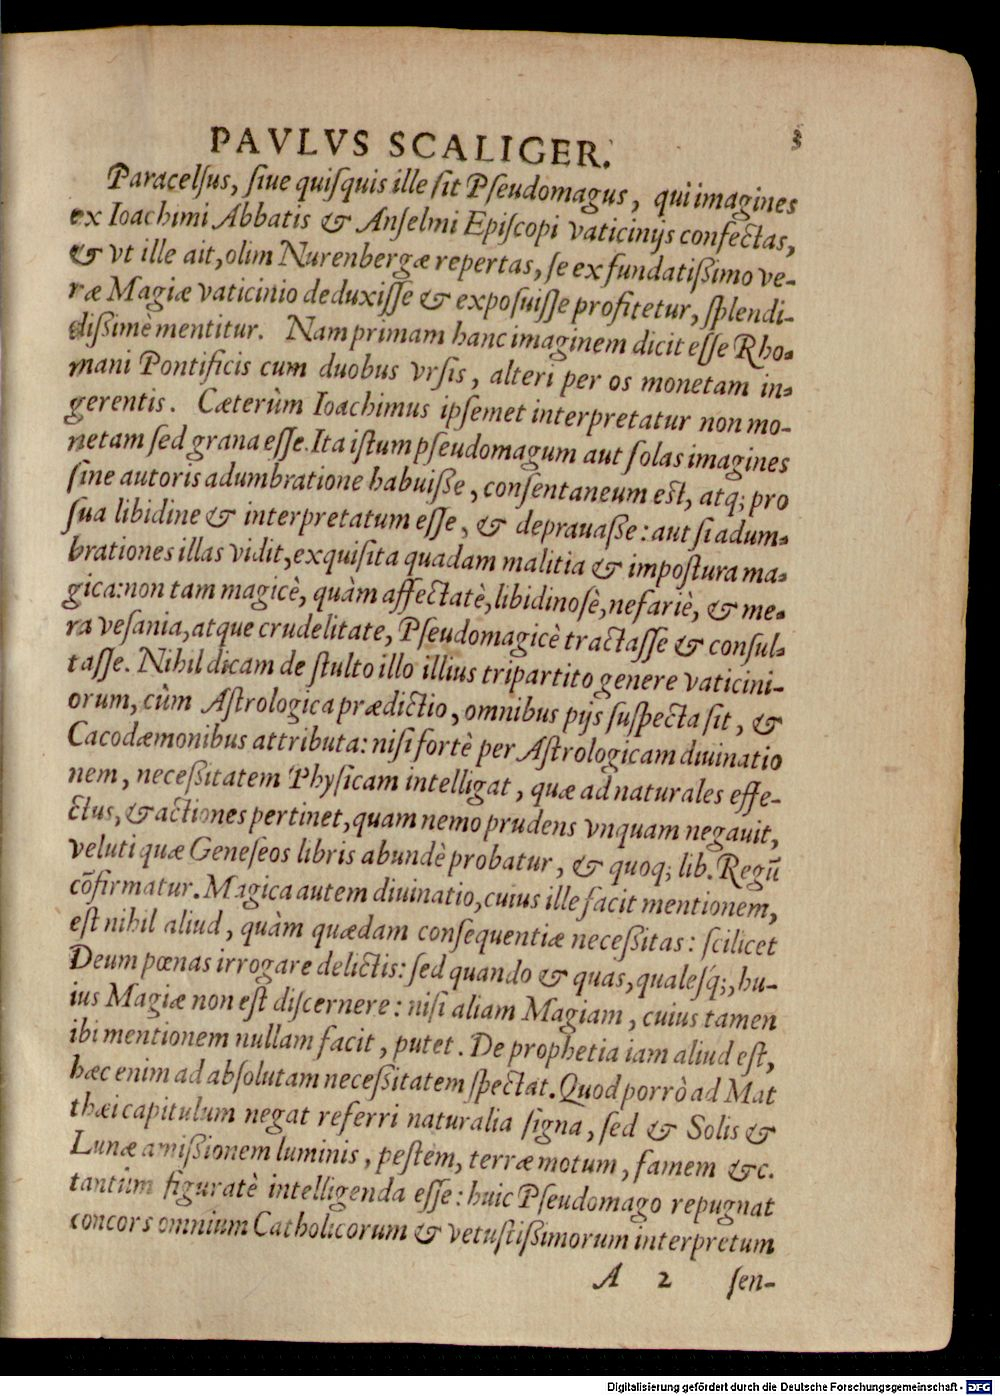 PAVLVS SCALIGER.
3
Paracelſus, ſiue quiſquis ille ſit Pſeudomagus, qui imagines
ex Ioachimi Abbatis & Anſelmi Epiſcopi vaticinijs confectas,
& vt ille ait, olim Nurenbergæ repertas, ſe ex fundatißimo ve-
ræ Magiæ vaticinio deduxiſſe & expoſuiſſe profitetur, ſplendi-
dißimè mentitur. Nam primam hanc imaginem dicit eſſe Rho-
mani Pontificis cum duobus vrſis, alteri per os monetam in-
gerentis. Cæterùm Ioachimus ipſemet interpretatur non mo-
netam ſed grana eſſe. Ita iſtum pſeudomagum aut ſolas imagines
ſine autoris adumbratione habuiße, conſentaneum eſt, atq; pro
ſua libidine & interpretatum eſſe, & deprauaße: aut ſi adum-
brationes illas vidit, exquiſita quadam malitia & impoſtura ma-
gica: non tam magicè, quàm affectatè, libidinoſè, nefariè, & me-
ra veſania, atque crudelitate, Pſeudomagicè tractaſſe & conſul-
taſſe. Nihil dicam de ſtulto illo illius tripartito genere vaticini-
orum, cùm Aſtrologica prædictio, omnibus pijs ſuſpecta ſit, &
Cacodæmonibus attributa: niſi fortè per Aſtrologicam diuinatio
nem, neceßitatem Phyſicam intelligat, quæ ad naturales effe-
ctus, & actiones pertinet, quam nemo prudens vnquam negauit,
veluti quæ Geneſeos libris abundè probatur, & quoq; lib. Regũ
cõfirmatur. Magica autem diuinatio, cuius ille facit mentionem,
eſt nihil aliud, quàm quædam conſequentiæ neceßitas: ſcilicet
Deum pœnas irrogare delictis: ſed quando & quas, qualeſq́;, hu-
ius Magiæ non eſt diſcernere: niſi aliam Magiam, cuius tamen
ibi mentionem nullam facit, putet. De prophetia iam aliud eſt,
hæc enim ad abſolutam neceßitatem ſpectat. Quod porrò ad Mat
thæi capitulum negat referri naturalia ſigna, ſed & Solis &
Lunæ amißionem luminis, peſtem, terræ motum, famem &c.
tantùm figuratè intelligenda eſſe: huic Pſeudomago repugnat
concors omnium Catholicorum & vetuſtißimorum interpretum
A 2 ſen-
Digitalisierung gefördert durch die Deutsche Forschungsgemeinschaft - DFG